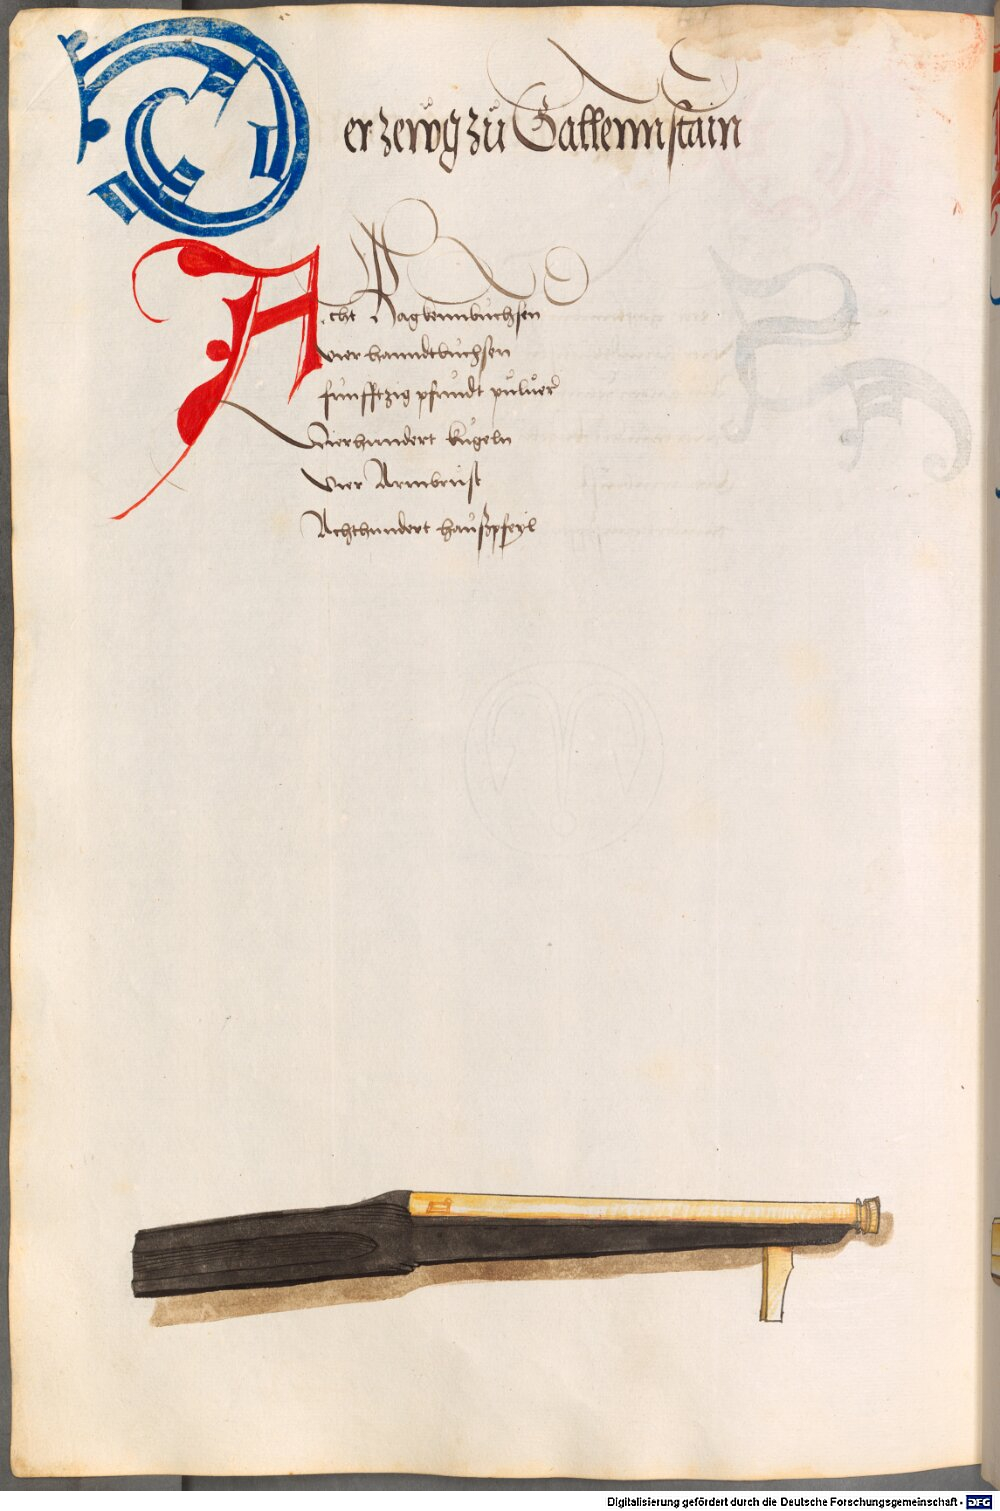 Der zeẅg zu Gallennstain
Acht Hagkennbüchsen
vier hanndtbüchsen
fünfftzig pfundt puluer
Vierhundert kugeln
vier Armbrust
Achthundert hawßpfeyl
Digitalisierung gefördert durch die Deutsche Forschungsgemeinschaft - DFG